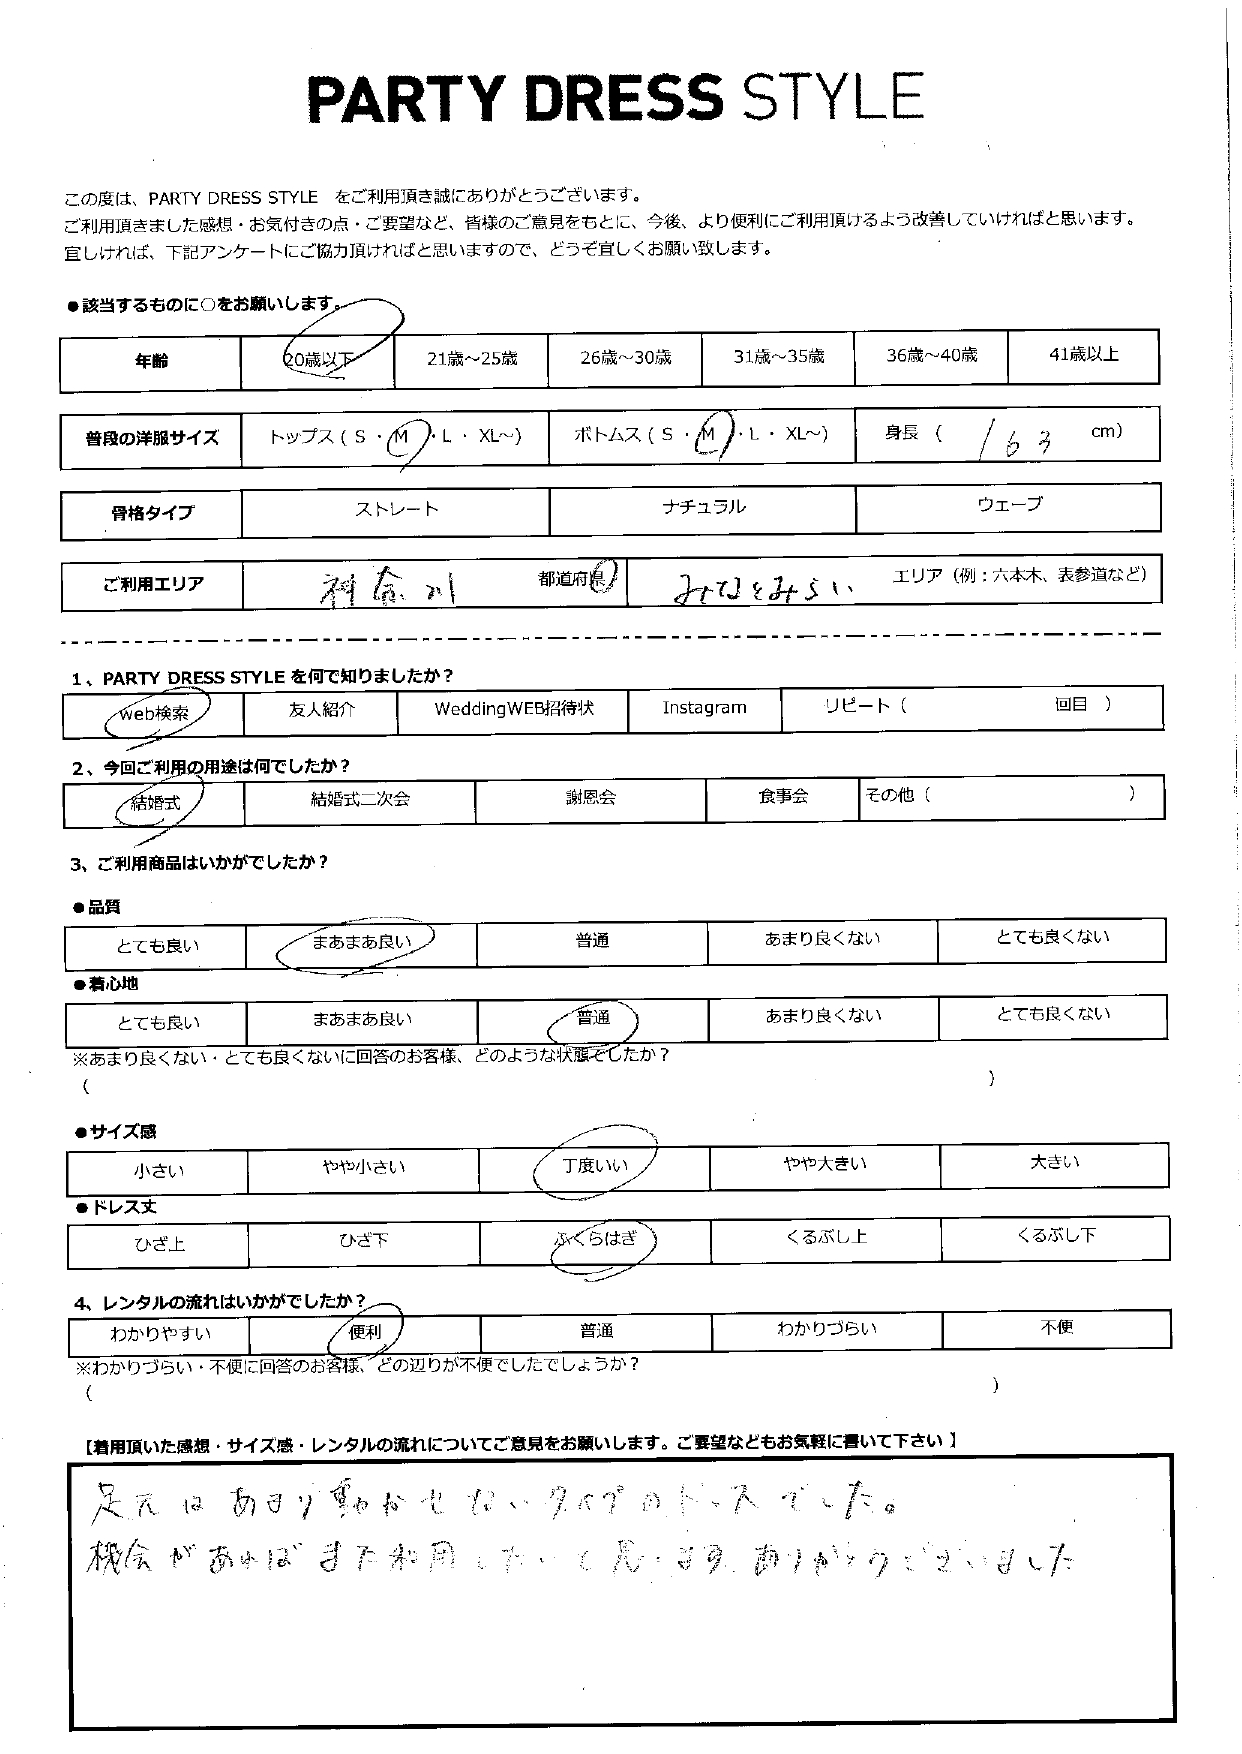 PARTY DRESS STYLE
この度は、PARTY DRESS STYLE をご利用頂き誠にありがとうございます。
ご利用頂きました感想・お気付きの点・ご要望など、皆様のご意見をもとに、今後、より便利にご利用頂けるよう改善していければと思います。
宜しければ、下記アンケートにご協力頂ければと思いますので、どうぞ宜しくお願い致します。
●該当するものに○をお願いします。
年齢 20歳以下 21歳～25歳 26歳～30歳 31歳～35歳 36歳～40歳 41歳以上
普段の洋服サイズ トップス ( S ・ M ・ L ・ XL～) ボトムス ( S ・ M ・ L ・ XL～) 身長 ( 163 cm)
骨格タイプ ストレート ナチュラル ウェーブ
ご利用エリア 神奈川 都道府県 みなとみらい エリア (例：六本木、表参道など)
1、PARTY DRESS STYLE を何で知りましたか？
web検索 友人紹介 WeddingWEB招待状 Instagram リピート ( 回目 )
2、今回ご利用の用途は何でしたか？
結婚式 結婚式二次会 謝恩会 食事会 その他 ( )
3、ご利用商品はいかがでしたか？
●品質
とても良い まあまあ良い 普通 あまり良くない とても良くない
●着心地
とても良い まあまあ良い 普通 あまり良くない とても良くない
※あまり良くない・とても良くないに回答のお客様、どのような状態でしたか？
( )
●サイズ感
小さい やや小さい 丁度いい やや大きい 大きい
●ドレス丈
ひざ上 ひざ下 ふくらはぎ くるぶし上 くるぶし下
4、レンタルの流れはいかがでしたか？
わかりやすい 便利 普通 わかりづらい 不便
※わかりづらい・不便に回答のお客様、どの辺りが不便でしたでしょうか？
( )
【着用頂いた感想・サイズ感・レンタルの流れについてご意見をお願いします。ご要望などもお気軽に書いて下さい 】
足元はあまり動かせないタイプのドレスでした。
機会があればまた利用したいと思います。ありがとうございました